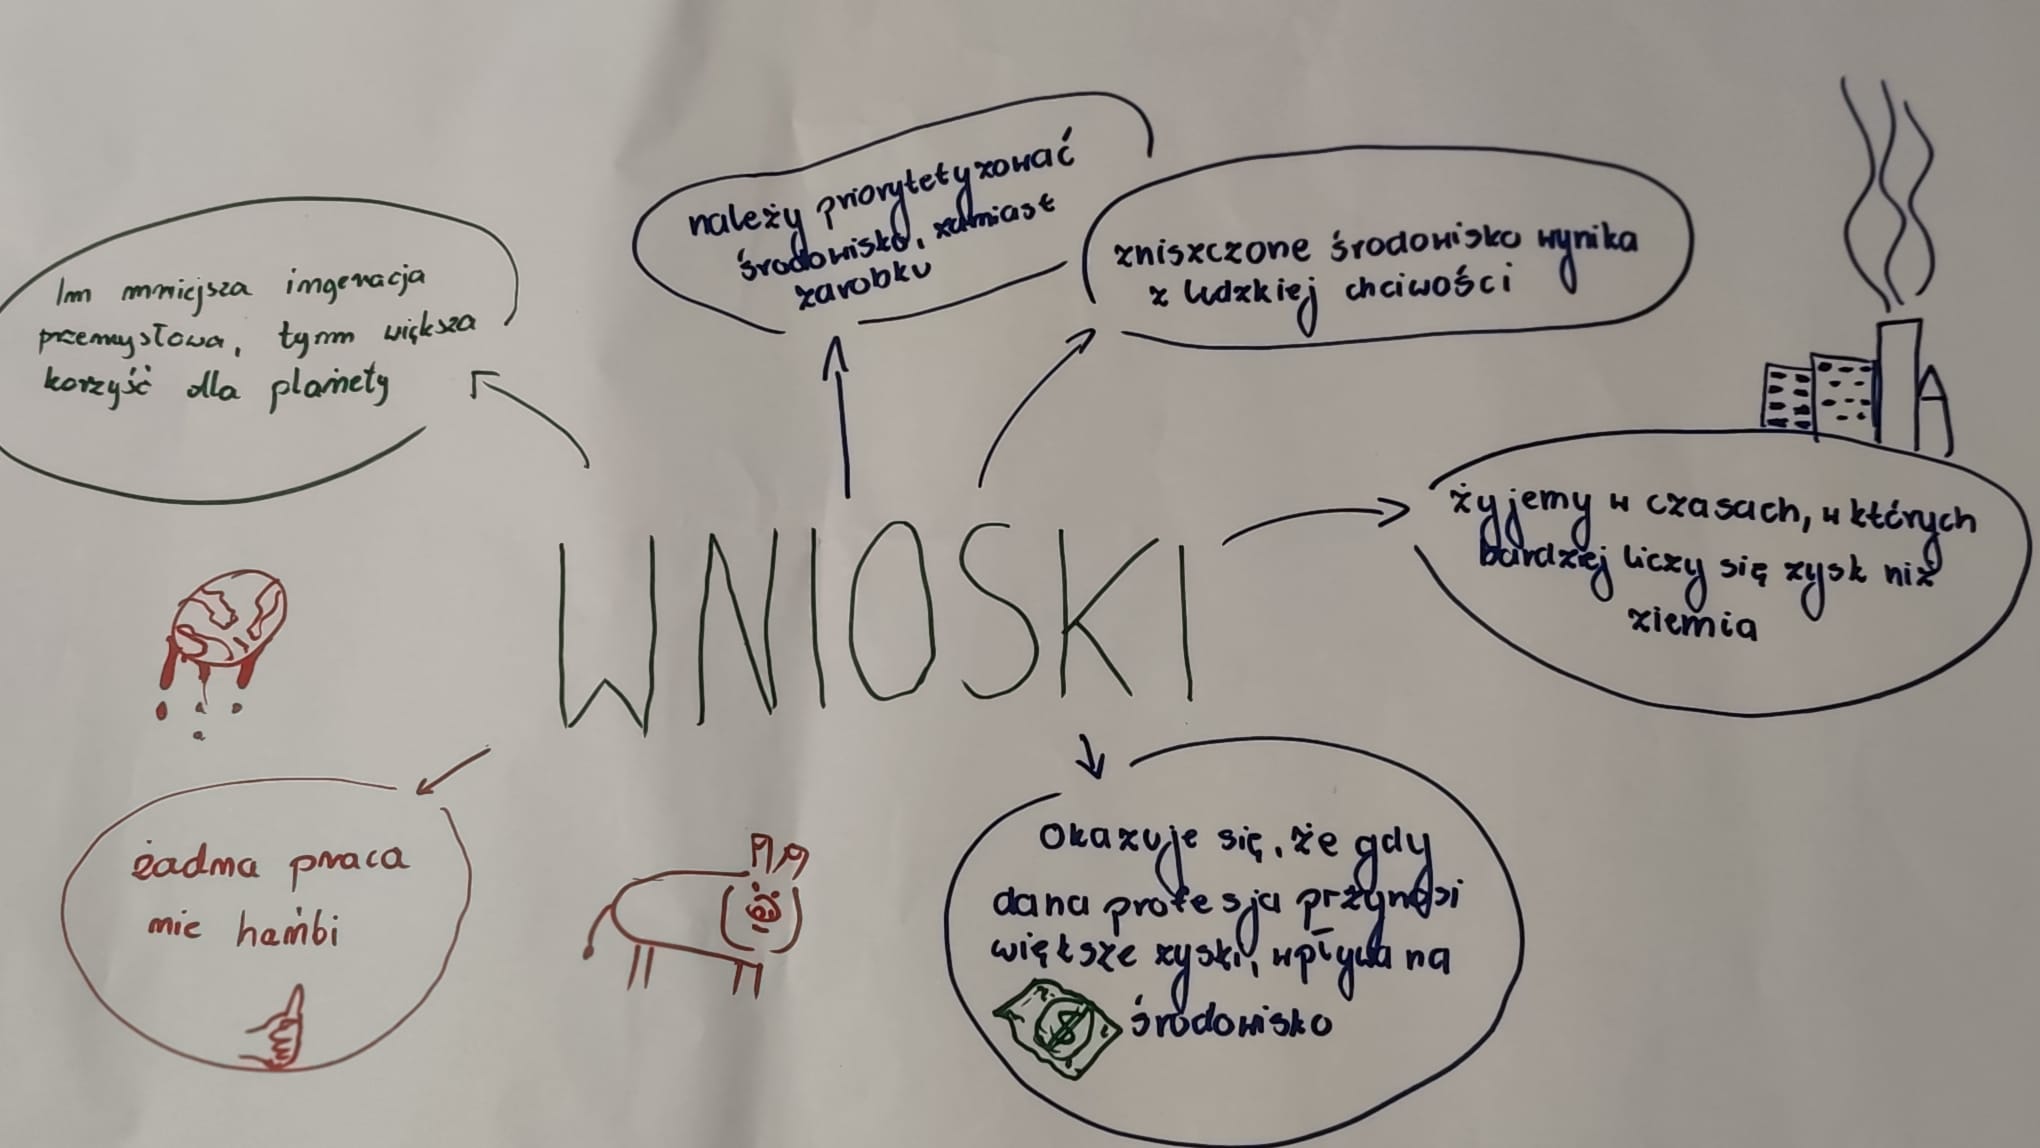 Im mniejsza ingeracja
przemysłowa, tym większa
korzyść dla planety
należy priorytetyzować
środowisko, zamiast
zarobku
zniszczone środowisko wynika
z ludzkiej chciwości
żyjemy w czasach, w których
bardziej liczy się zysk niż
ziemia
WNIOSKI
żadna praca
nie hańbi
Okazuje się, że gdy
dana profesja przynosi
większe zyski, wpływa na
środowisko
$